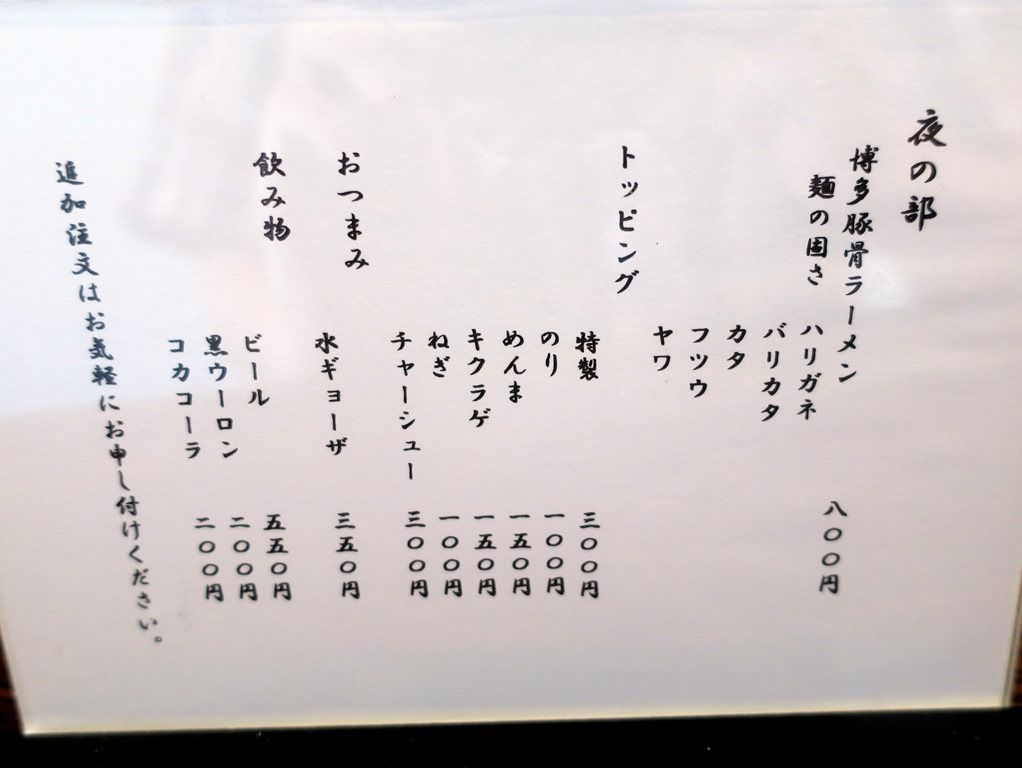 夜の部
博多豚骨ラーメン 八〇〇円
麺の固さ ハリガネ
バリカタ
カタ
フツウ
ヤワ
トッピング
特製 三〇〇円
のり 一〇〇円
めんま 一五〇円
キクラゲ 一五〇円
ねぎ 一〇〇円
チャーシュー 三〇〇円
おつまみ
水ギョーザ 三五〇円
飲み物
ビール 五五〇円
黒ウーロン 二〇〇円
コカコーラ 二〇〇円
追加注文はお気軽にお申し付けください。